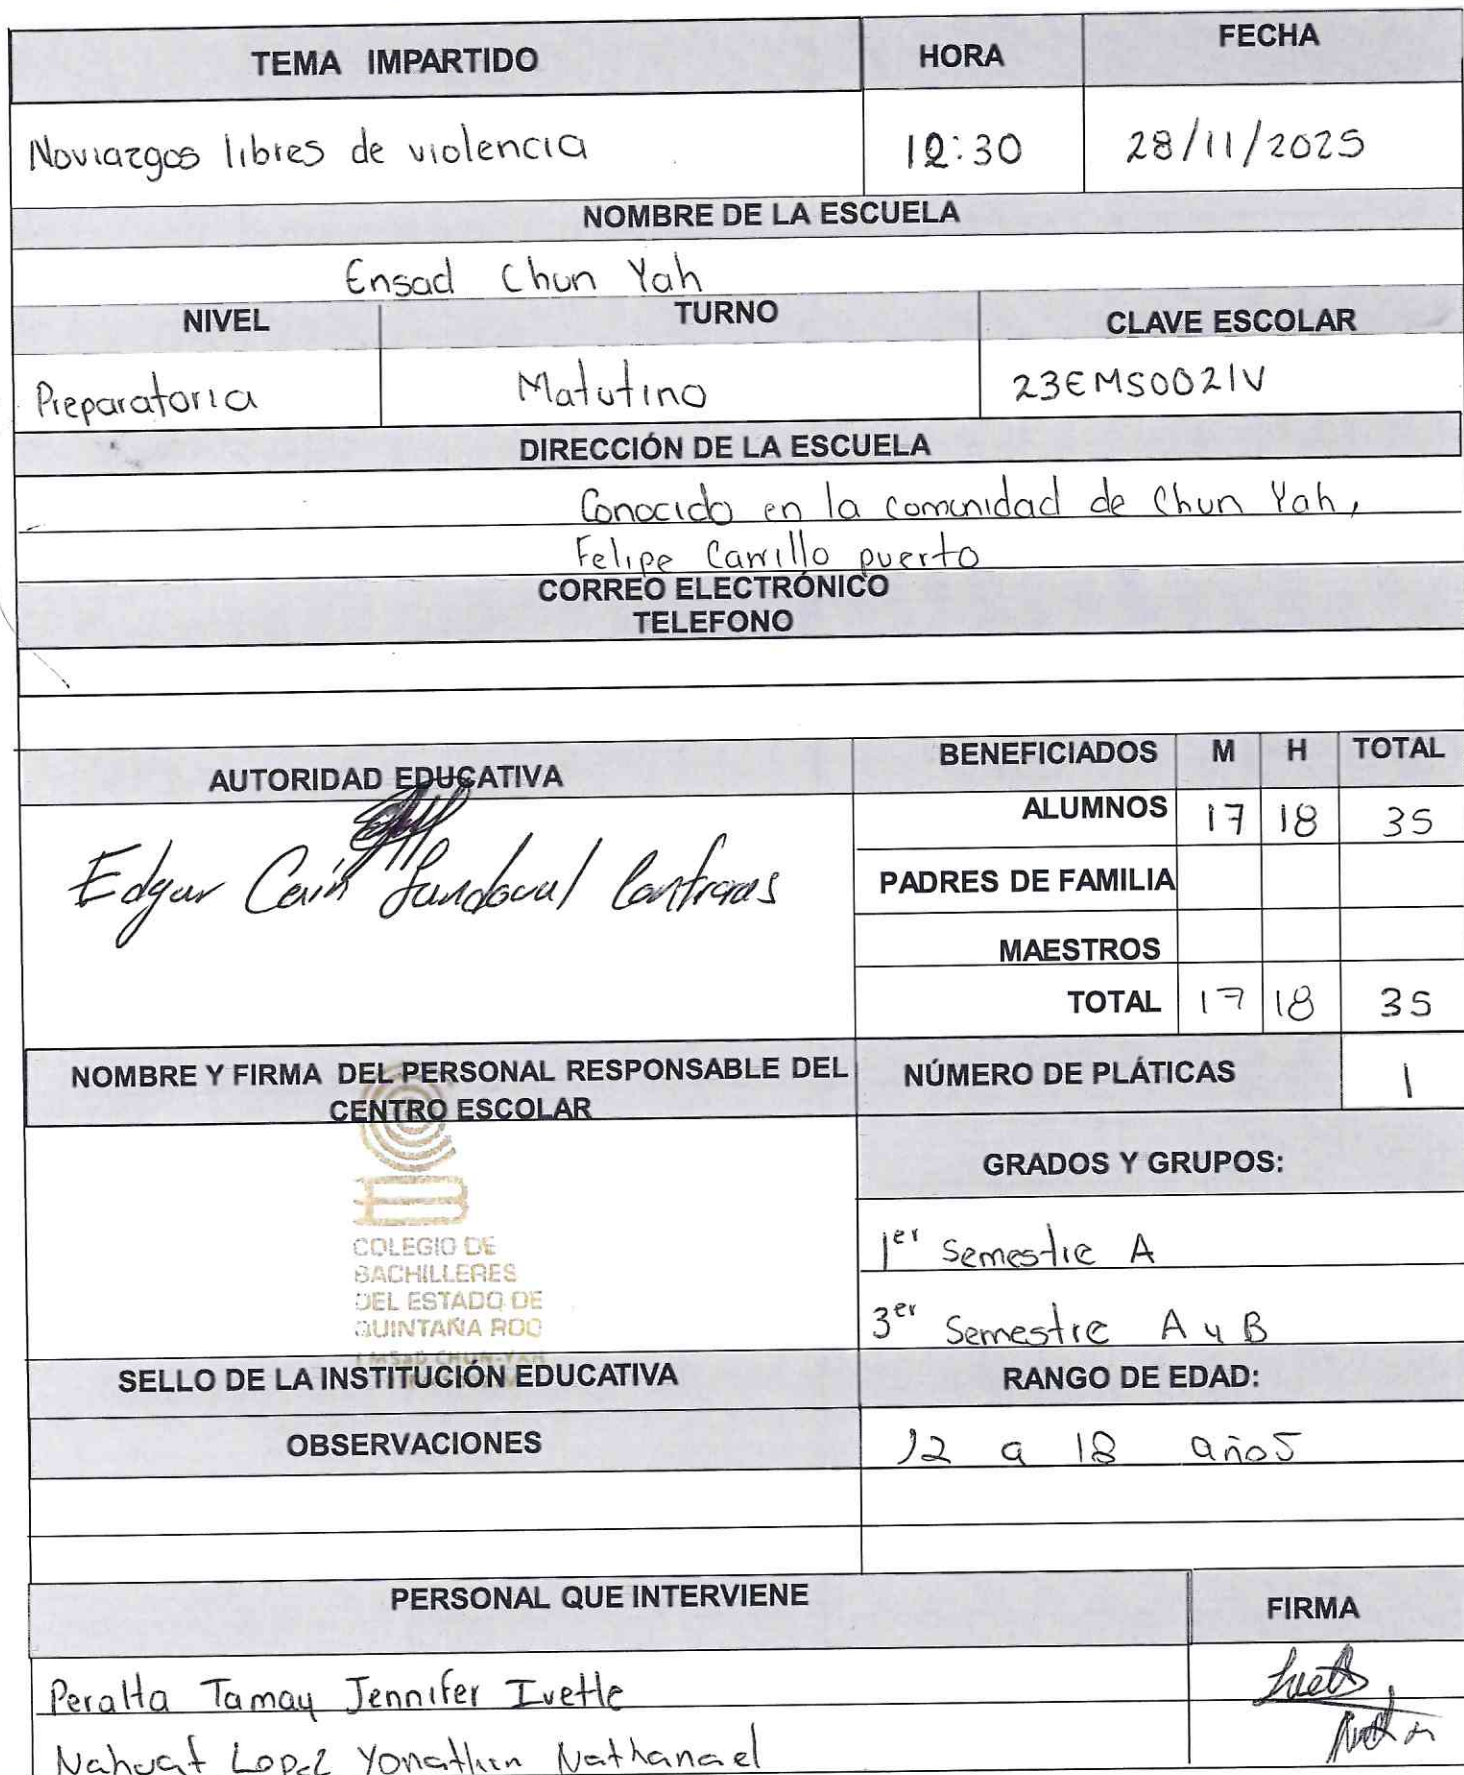 TEMA IMPARTIDO HORA FECHA
Noviazgos libres de violencia 12:30 28/11/2025
NOMBRE DE LA ESCUELA
Ensad Chun Yah
NIVEL TURNO CLAVE ESCOLAR
Preparatoria Matutino 23EMS0021V
DIRECCIÓN DE LA ESCUELA
Conocido en la comunidad de Chun Yah,
Felipe Carrillo puerto
CORREO ELECTRÓNICO
TELEFONO
AUTORIDAD EDUCATIVA BENEFICIADOS M H TOTAL
Edgar Caín Sandoval Contreras
ALUMNOS 17 18 35
PADRES DE FAMILIA
MAESTROS
TOTAL 17 18 35
NOMBRE Y FIRMA DEL PERSONAL RESPONSABLE DEL
CENTRO ESCOLAR
NÚMERO DE PLÁTICAS 1
GRADOS Y GRUPOS:
1er Semestre A
3er Semestre A y B
COLEGIO DE
BACHILLERES
DEL ESTADO DE
QUINTANA ROO
EMSaD CHUN-YAH
SELLO DE LA INSTITUCIÓN EDUCATIVA RANGO DE EDAD:
OBSERVACIONES 12 a 18 años
PERSONAL QUE INTERVIENE FIRMA
Peralta Tamay Jennifer Ivette
Nahuat Lopez Yonathan Nathanael